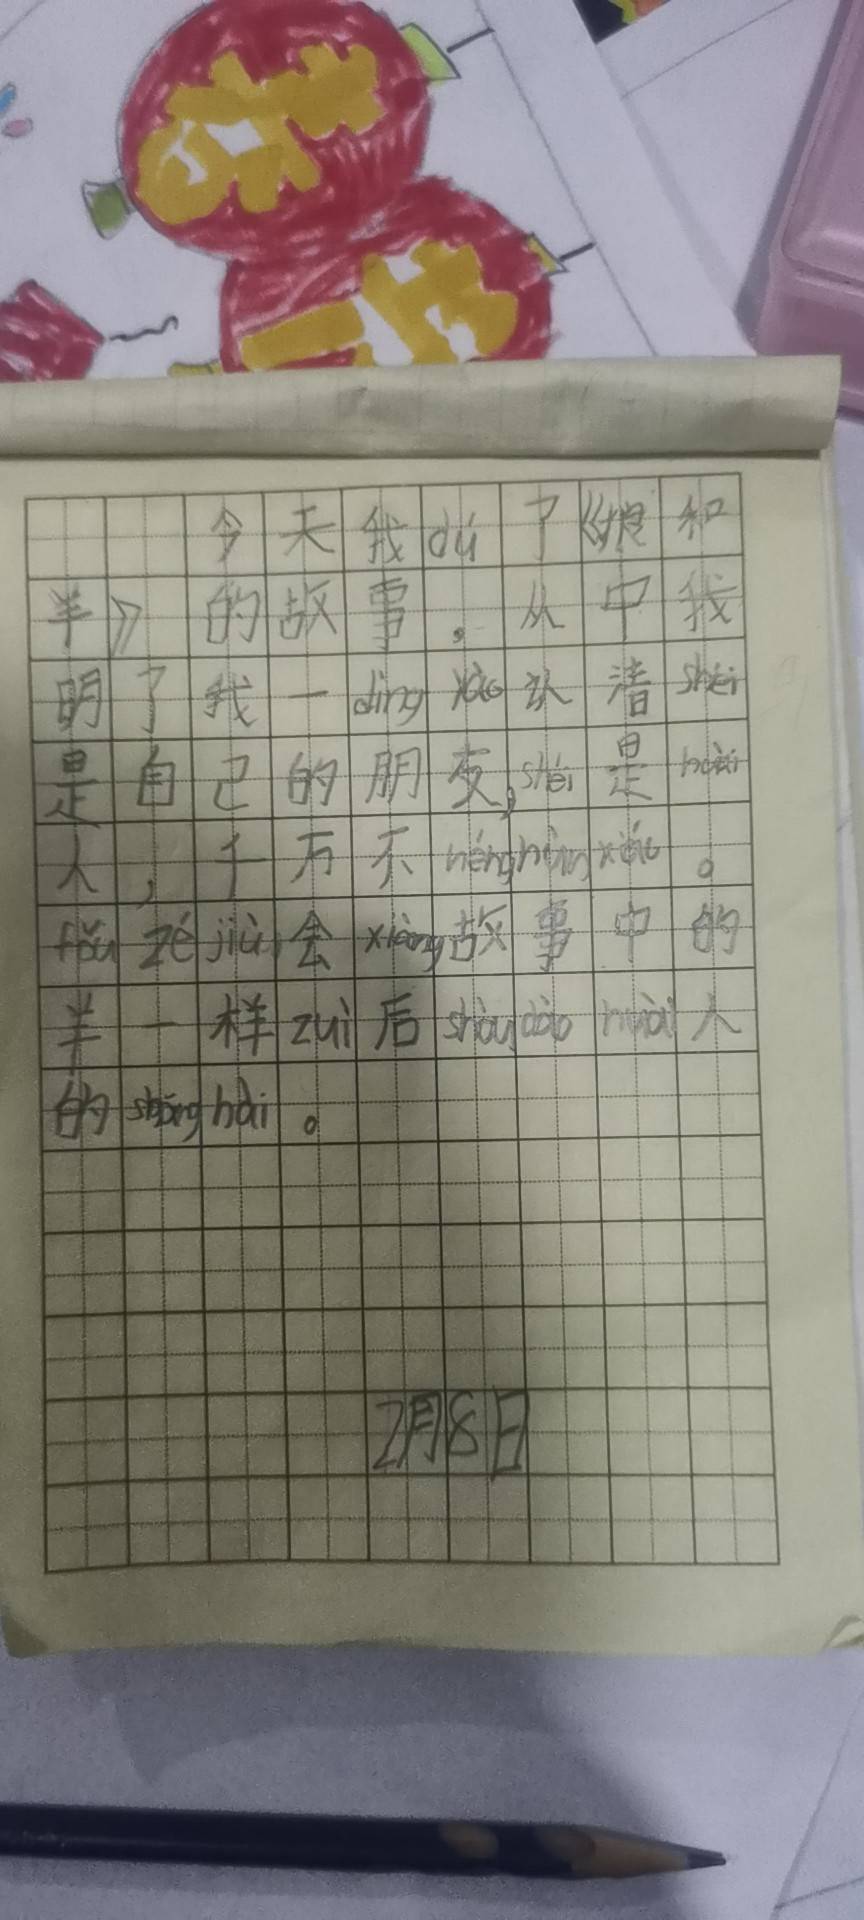 今天我dú了《狼和
羊》的故事。从中我
明了我一dìng yào认清shéi
是自己的朋友,shéi是huài
人,千万不néng hùn xiáo。
fǒu zé jiù会xiàng故事中的
羊一样zuì后shòu dào huài人
的shāng hài。
2月8日